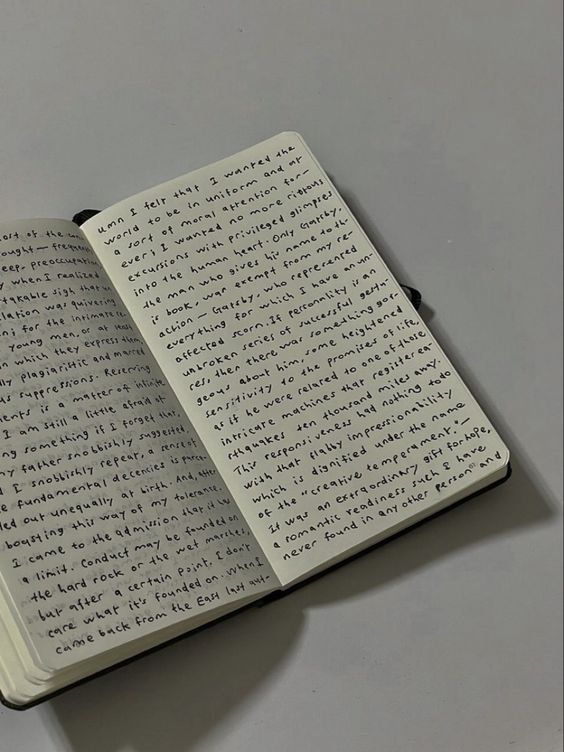 ost of the con
ought — frequen
eep, preoccupation
y when I realized
takable sign that
lation was quivering
for the intimate
young men or at least
n which they express them
lly plagiaristic and marred
us suppressions. Reserving
ents is a matter of infinite
I am still a little afraid of
ng something if I forget that
my father snobbishly suggested
d I snobbishly repeat, a sense of
e fundamental decencies is parce
led out unequally at birth. And, after
boasting this way of my tolerance,
I came to the admission that it has
a limit. conduct may be founded on
the hard rock or the wet marshes,
but after a certain point, I don't
care what it's founded on. When I
came back from the East last aut-
umn I felt that I wanted the
world to be in uniform and at
a sort of moral attention for-
ever; I wanted no more riotous
excursions with privileged glimpses
into the human heart. Only Gatsby,
the man who gives his name to th-
is book, was exempt from my re-
action — Gatsby, who represented
everything for which I have an un-
affected scorn. If personality is an
unbroken series of successful gestu-
res, then there was something gor-
geous about him, some heightened
sensitivity to the promises of life,
as if he were related to one of those
intricate machines that register ea-
rthquakes ten thousand miles away.
This responsiveness had nothing to do
with that flabby impressionability
which is dignified under the name
of the "creative temperament."—
it was an extraordinary gift for hope,
a romantic readiness such I have
never found in any other person and